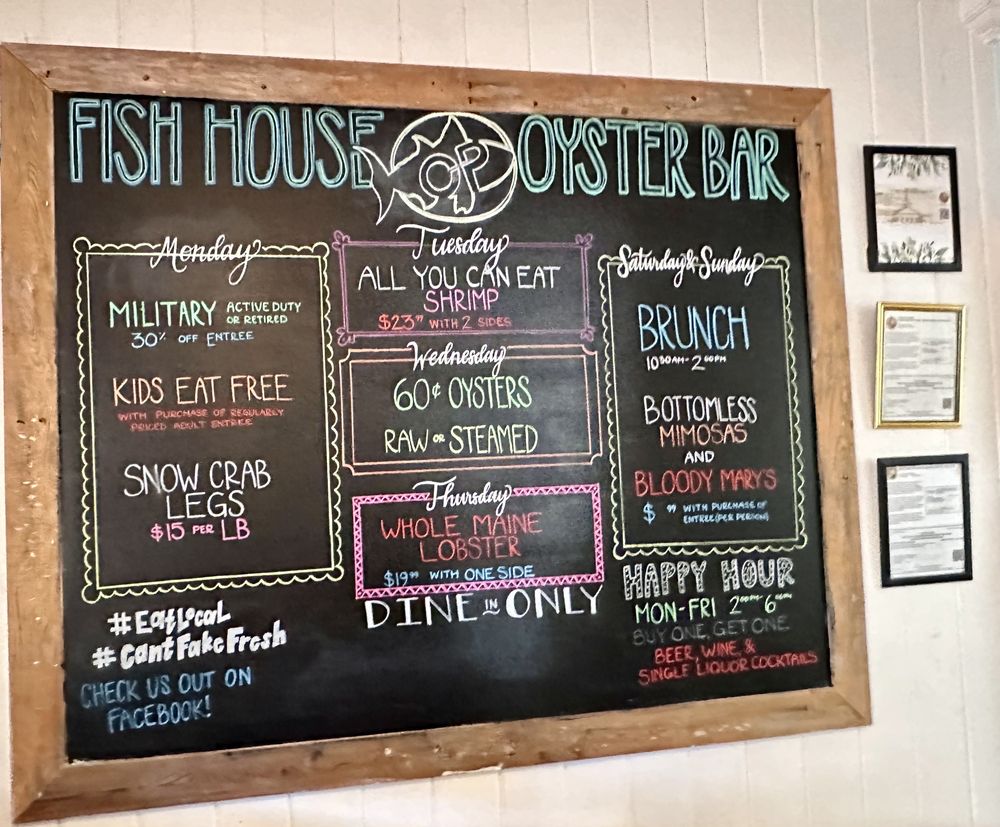 FISH HOUSE OP OYSTER BAR
Monday
MILITARY ACTIVE DUTY
OR RETIRED
30% OFF ENTREE
KIDS EAT FREE
WITH PURCHASE OF REGULARLY
PRICED ADULT ENTREE
SNOW CRAB
LEGS
$15 PER LB
#EatLocal
#CantFakeFresh
CHECK US OUT ON
FACEBOOK!
Tuesday
ALL YOU CAN EAT
SHRIMP
WITH 2 SIDES
Wednesday
60¢ OYSTERS
RAW OR STEAMED
Thursday
WHOLE MAINE
LOBSTER
$19⁹⁹ WITH ONE SIDE
DINE IN ONLY
Saturday & Sunday
BRUNCH
10⁰⁰AM-2⁰⁰PM
BOTTOMLESS
MIMOSAS
AND
BLOODY MARY'S
$ ⁹⁹ WITH PURCHASE OF
ENTREE (PER PERSON)
HAPPY HOUR
MON-FRI 2⁰⁰PM-6⁰⁰PM
BUY ONE, GET ONE
BEER, WINE, &
SINGLE LIQUOR COCKTAILS